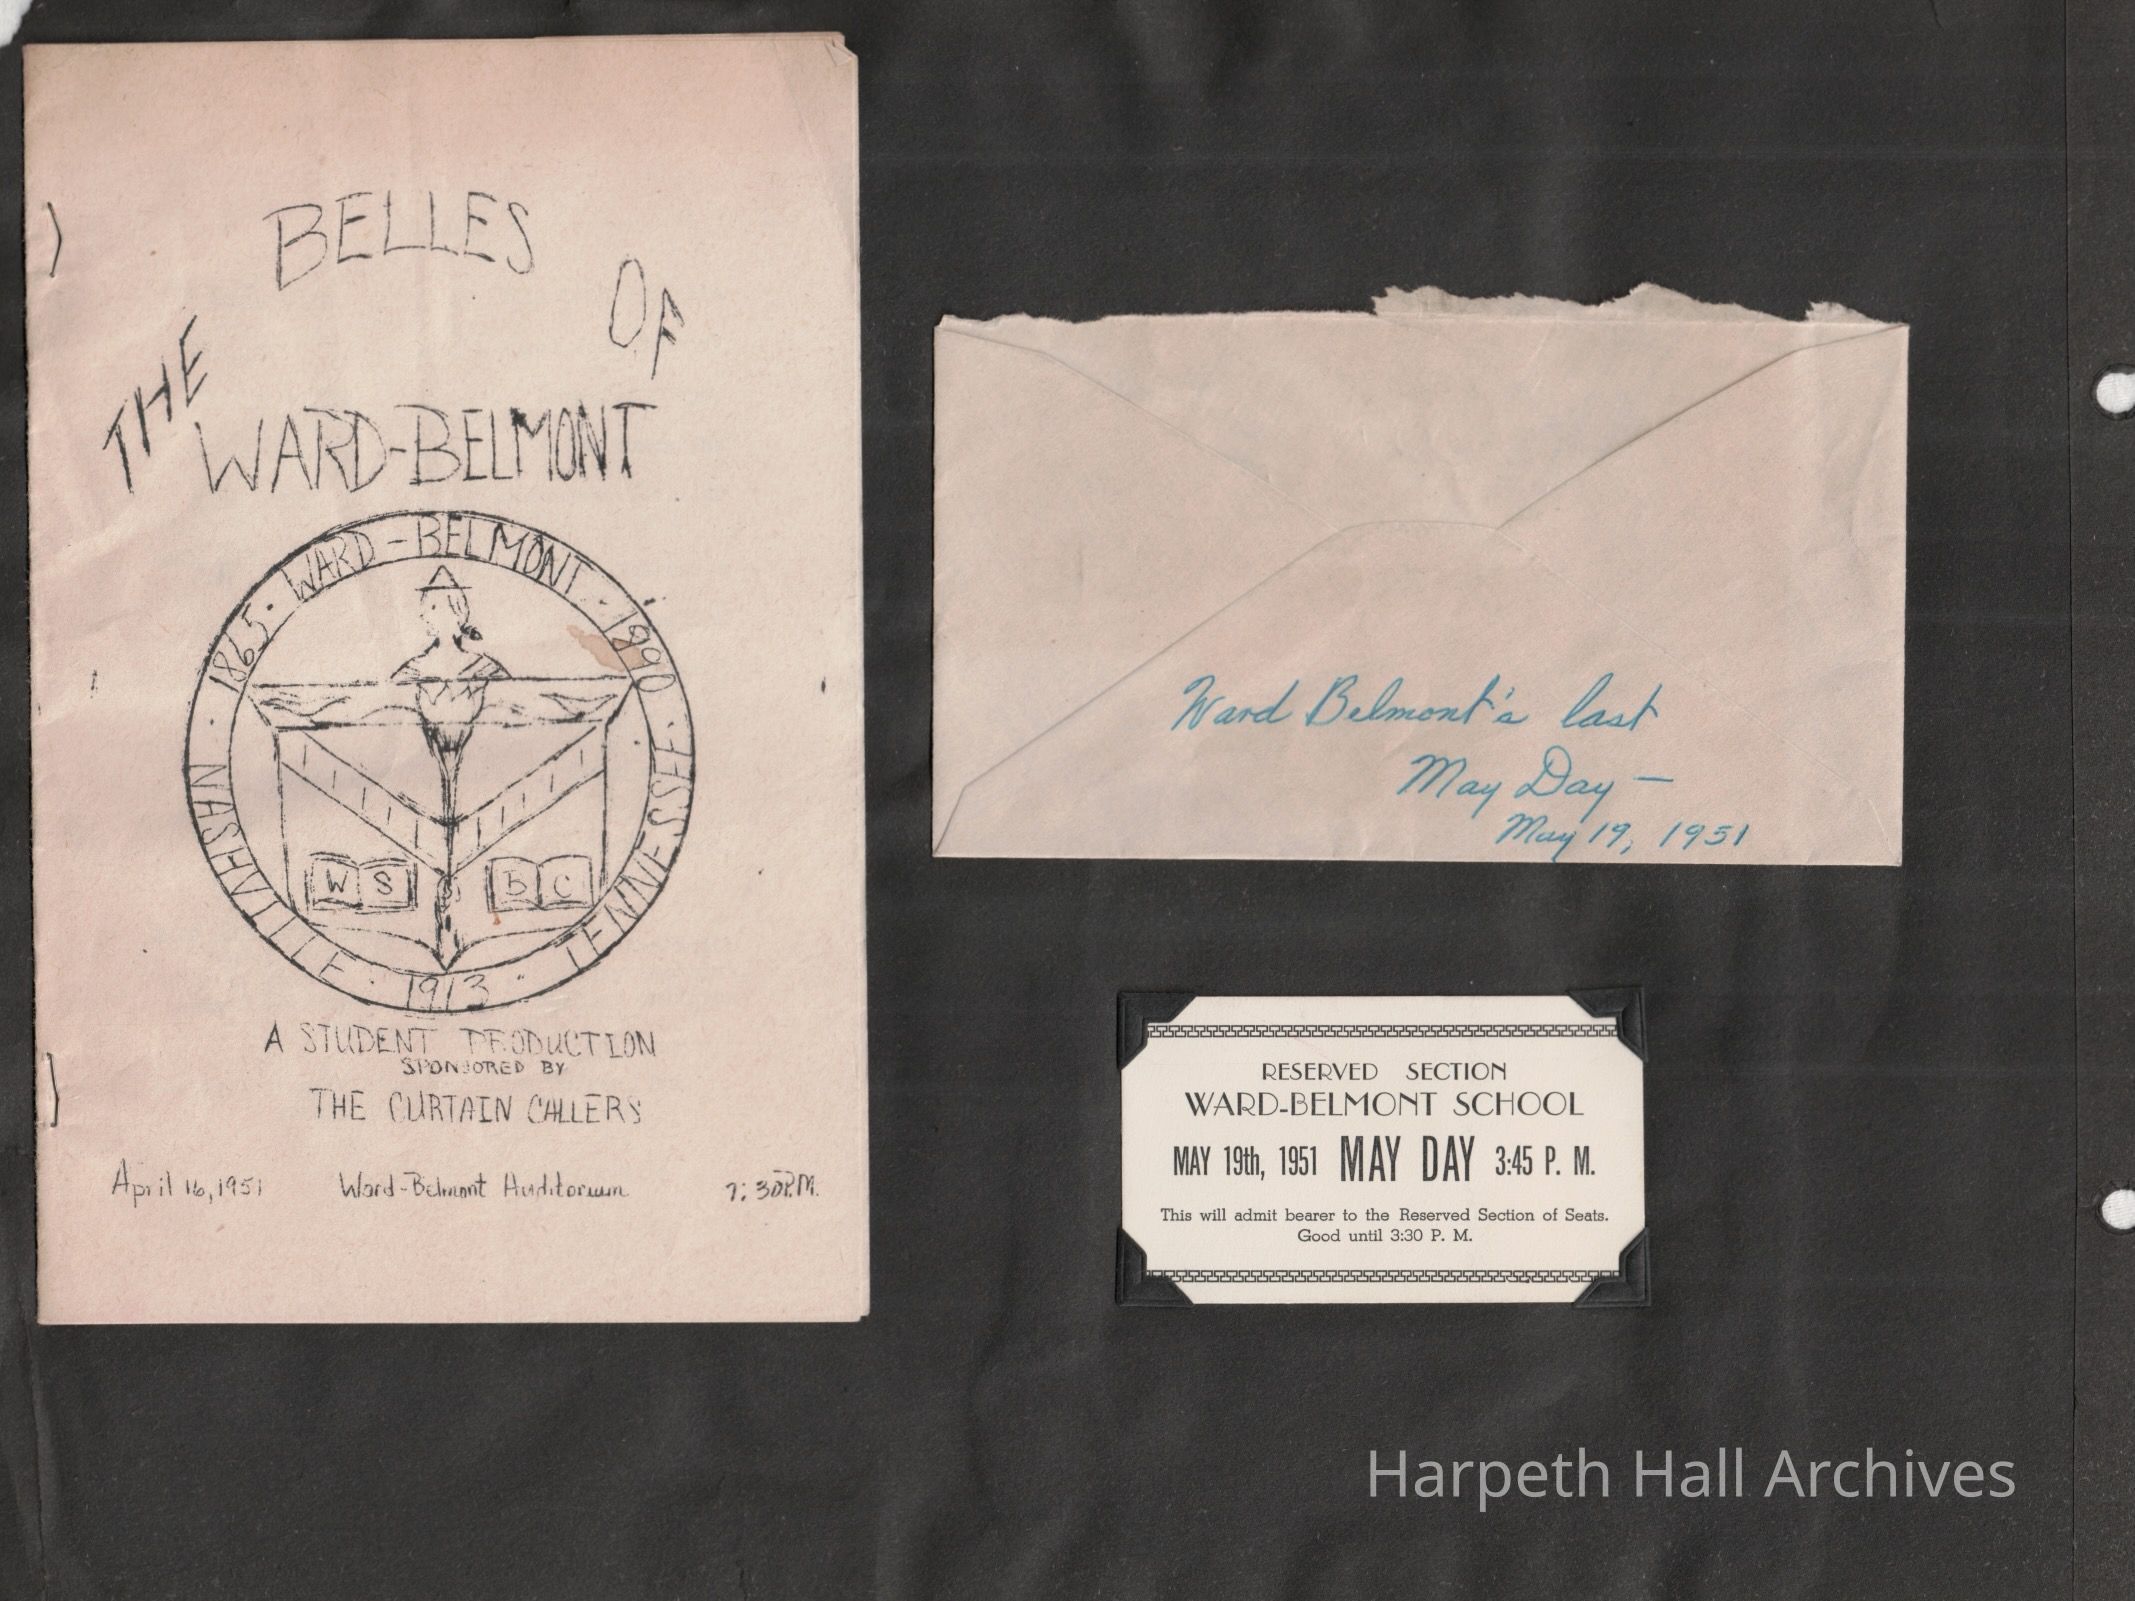 THE BELLES OF
WARD-BELMONT
1865 · WARD-BELMONT · 1890
NASHVILLE · 1913 · TENNESSEE
W S B C
A STUDENT PRODUCTION
SPONSORED BY
THE CURTAIN CALLERS
April 16, 1951 Ward-Belmont Auditorium 7:30 P.M.
Ward Belmont's last
May Day —
May 19, 1951
RESERVED SECTION
WARD-BELMONT SCHOOL
MAY 19th, 1951 MAY DAY 3:45 P. M.
This will admit bearer to the Reserved Section of Seats.
Good until 3:30 P. M.
Harpeth Hall Archives